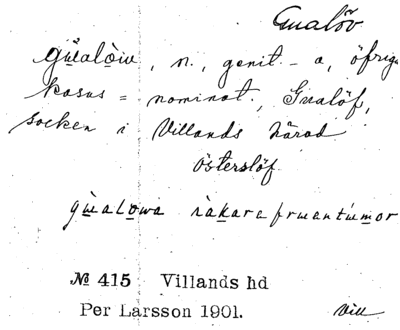 Gualöv
gu̲alòw, n., genit - a, öfriga
kasus = nominat, Gualöf,
socken i Villands härad
österslöf
gu̲alo̲wa ràk̲are fruantìm̲or
№ 415 Villands hd
Per Larsson 1901.
Vill